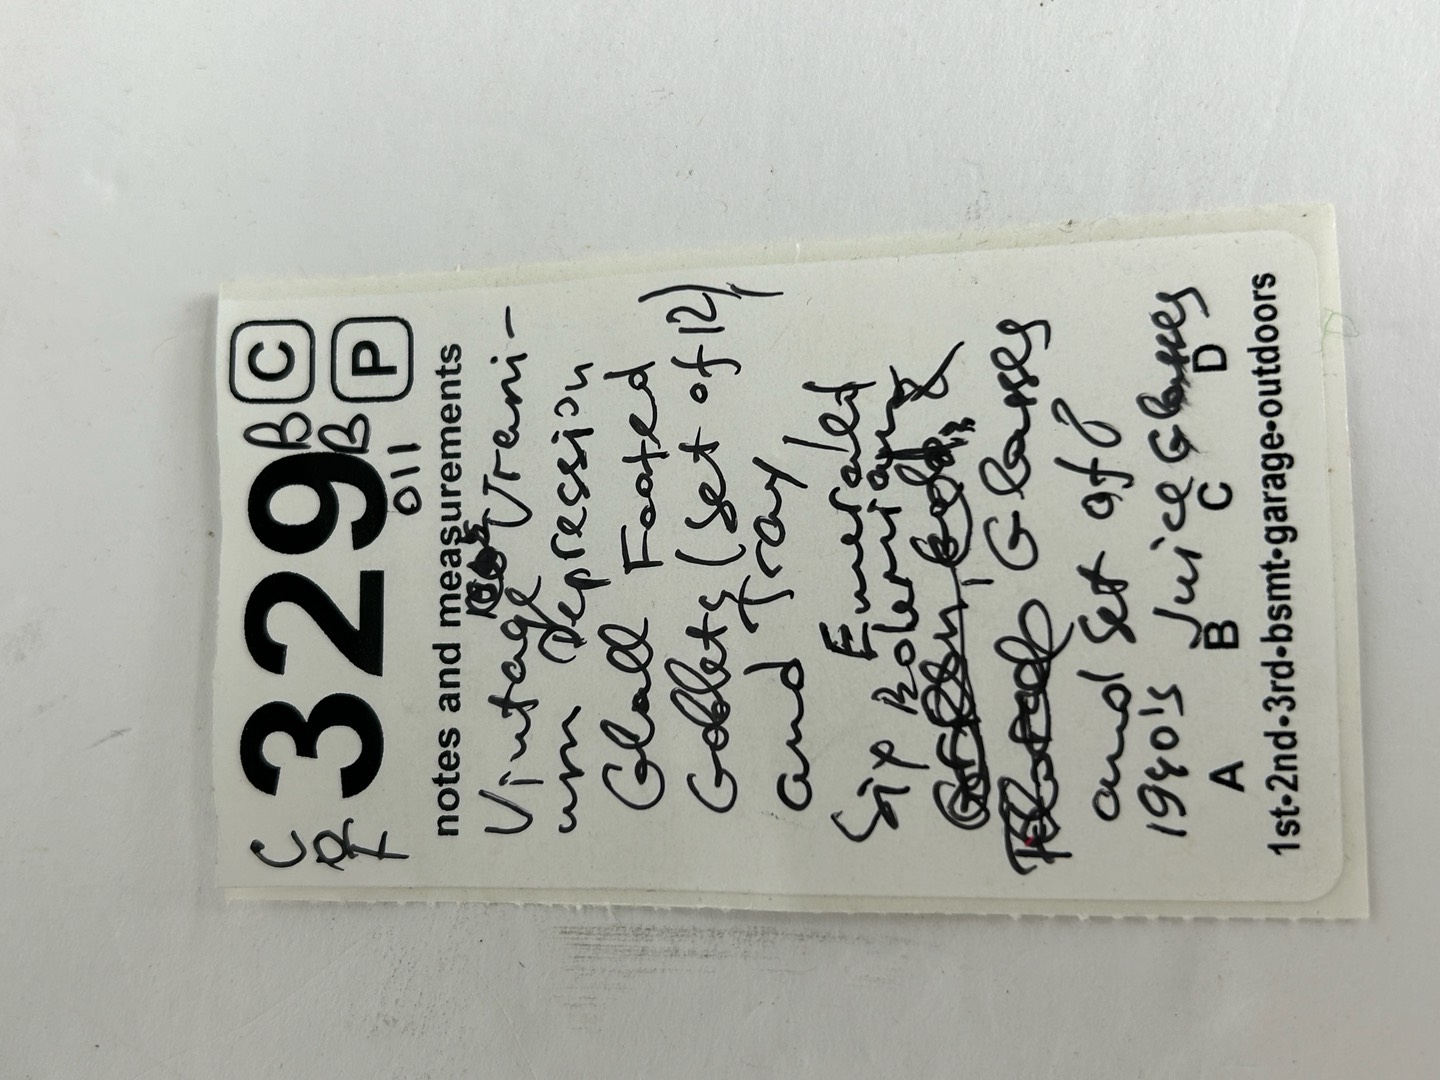 C 329 B C
RF B P
011
notes and measurements
Vintage Urani-
um Depression
Glall Footed
Goblets (Set of 12)
and tray
Six Emerald
Bolemian
Glasses
and Set of 8
1940's Juice Glasses
A B C D
1st•2nd•3rd•bsmt•garage•outdoors